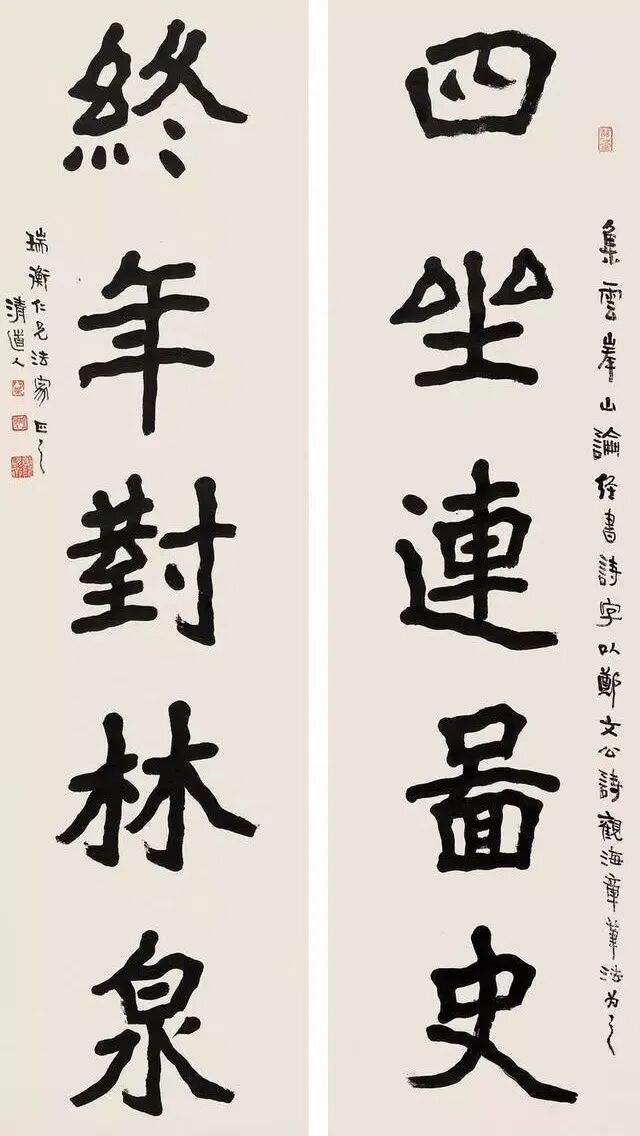 集雲峯山論経書詩字以鄭文公詩觀海章筆法为之
四坐連啚史
終年對林泉
瑞衡仁兄法家正之
清道人